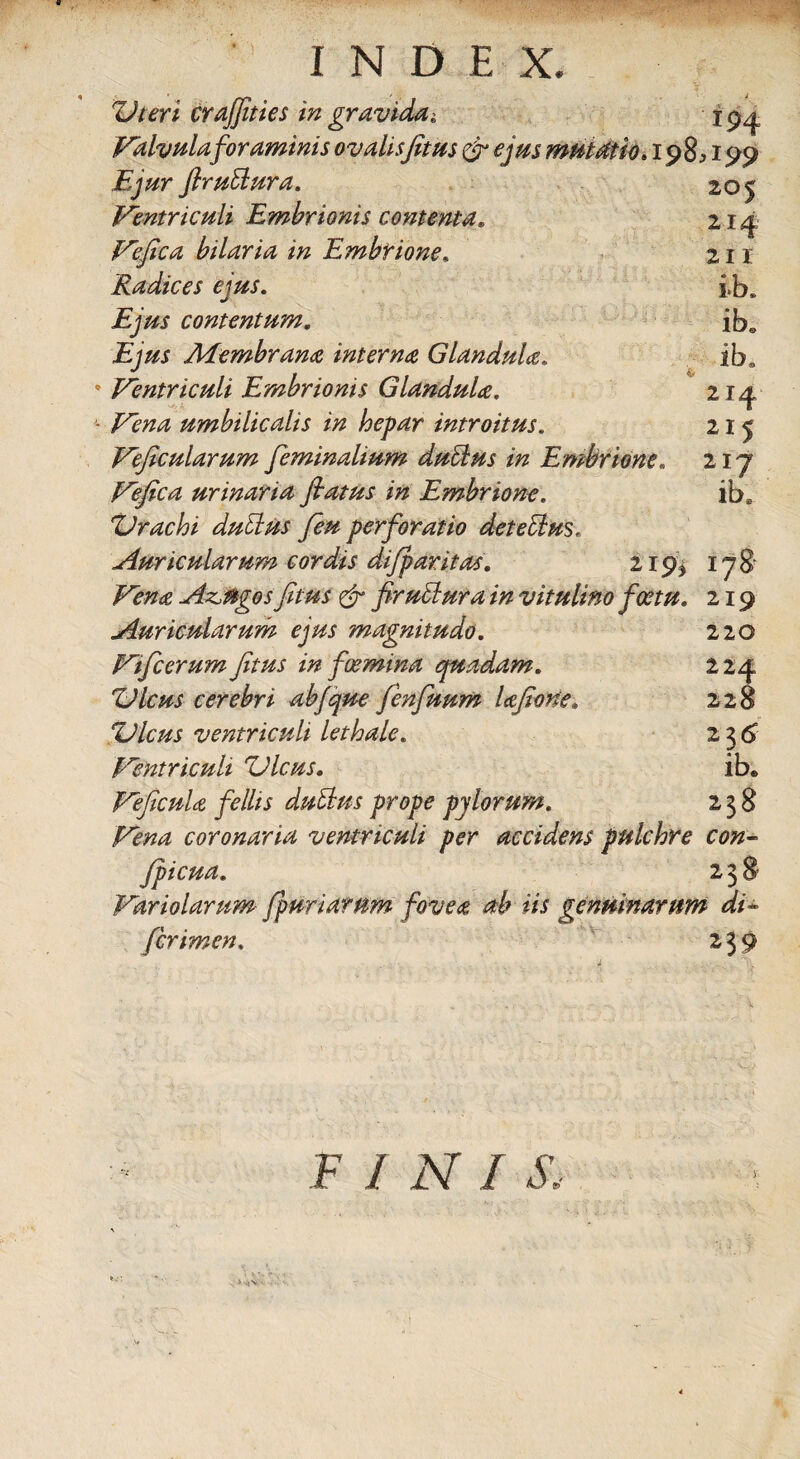 INDEX.
Vteri craſſities in gravida. 194
Valvula foraminis ovalis ſitus & ejus mutatio. 198, 199
Ejur ſtructura. 205
Ventriculi Embrionis contenta. 214
Veſica bilaria in Embrione. 211
Radices ejus. ib.
Ejus contentum. ib.
Ejus Membranæ internæ Glandulæ. ib.
Ventriculi Embrionis Glandulæ. 214
Vena umbilicalis in hepar introitus. 215
Veſicularum ſeminalium ductus in Embrione. 217
Veſica urinaria ſtatus in Embrione. ib.
Vrachi ductus ſeu perforatio detectus.
Auricularum cordis diſparitas. 219, 178
Venæ Azugos ſitus & ſtructura in vitulino fœtu. 219
Auricularum ejus magnitudo. 220
Viſcerum ſitus in fœmina quadam. 224
Vlcus cerebri abſque ſenſuum læſione. 228
Vlcus ventriculi lethale. 236
Ventriculi Vlcus. ib.
Veſiculæ fellis ductus prope pylorum. 238
Vena coronaria ventriculi per accidens pulchre con-
ſpicua. 238
Variolarum ſpuriarum foveæ ab iis genuinarum di-
ſcrimen. 239
FINIS.